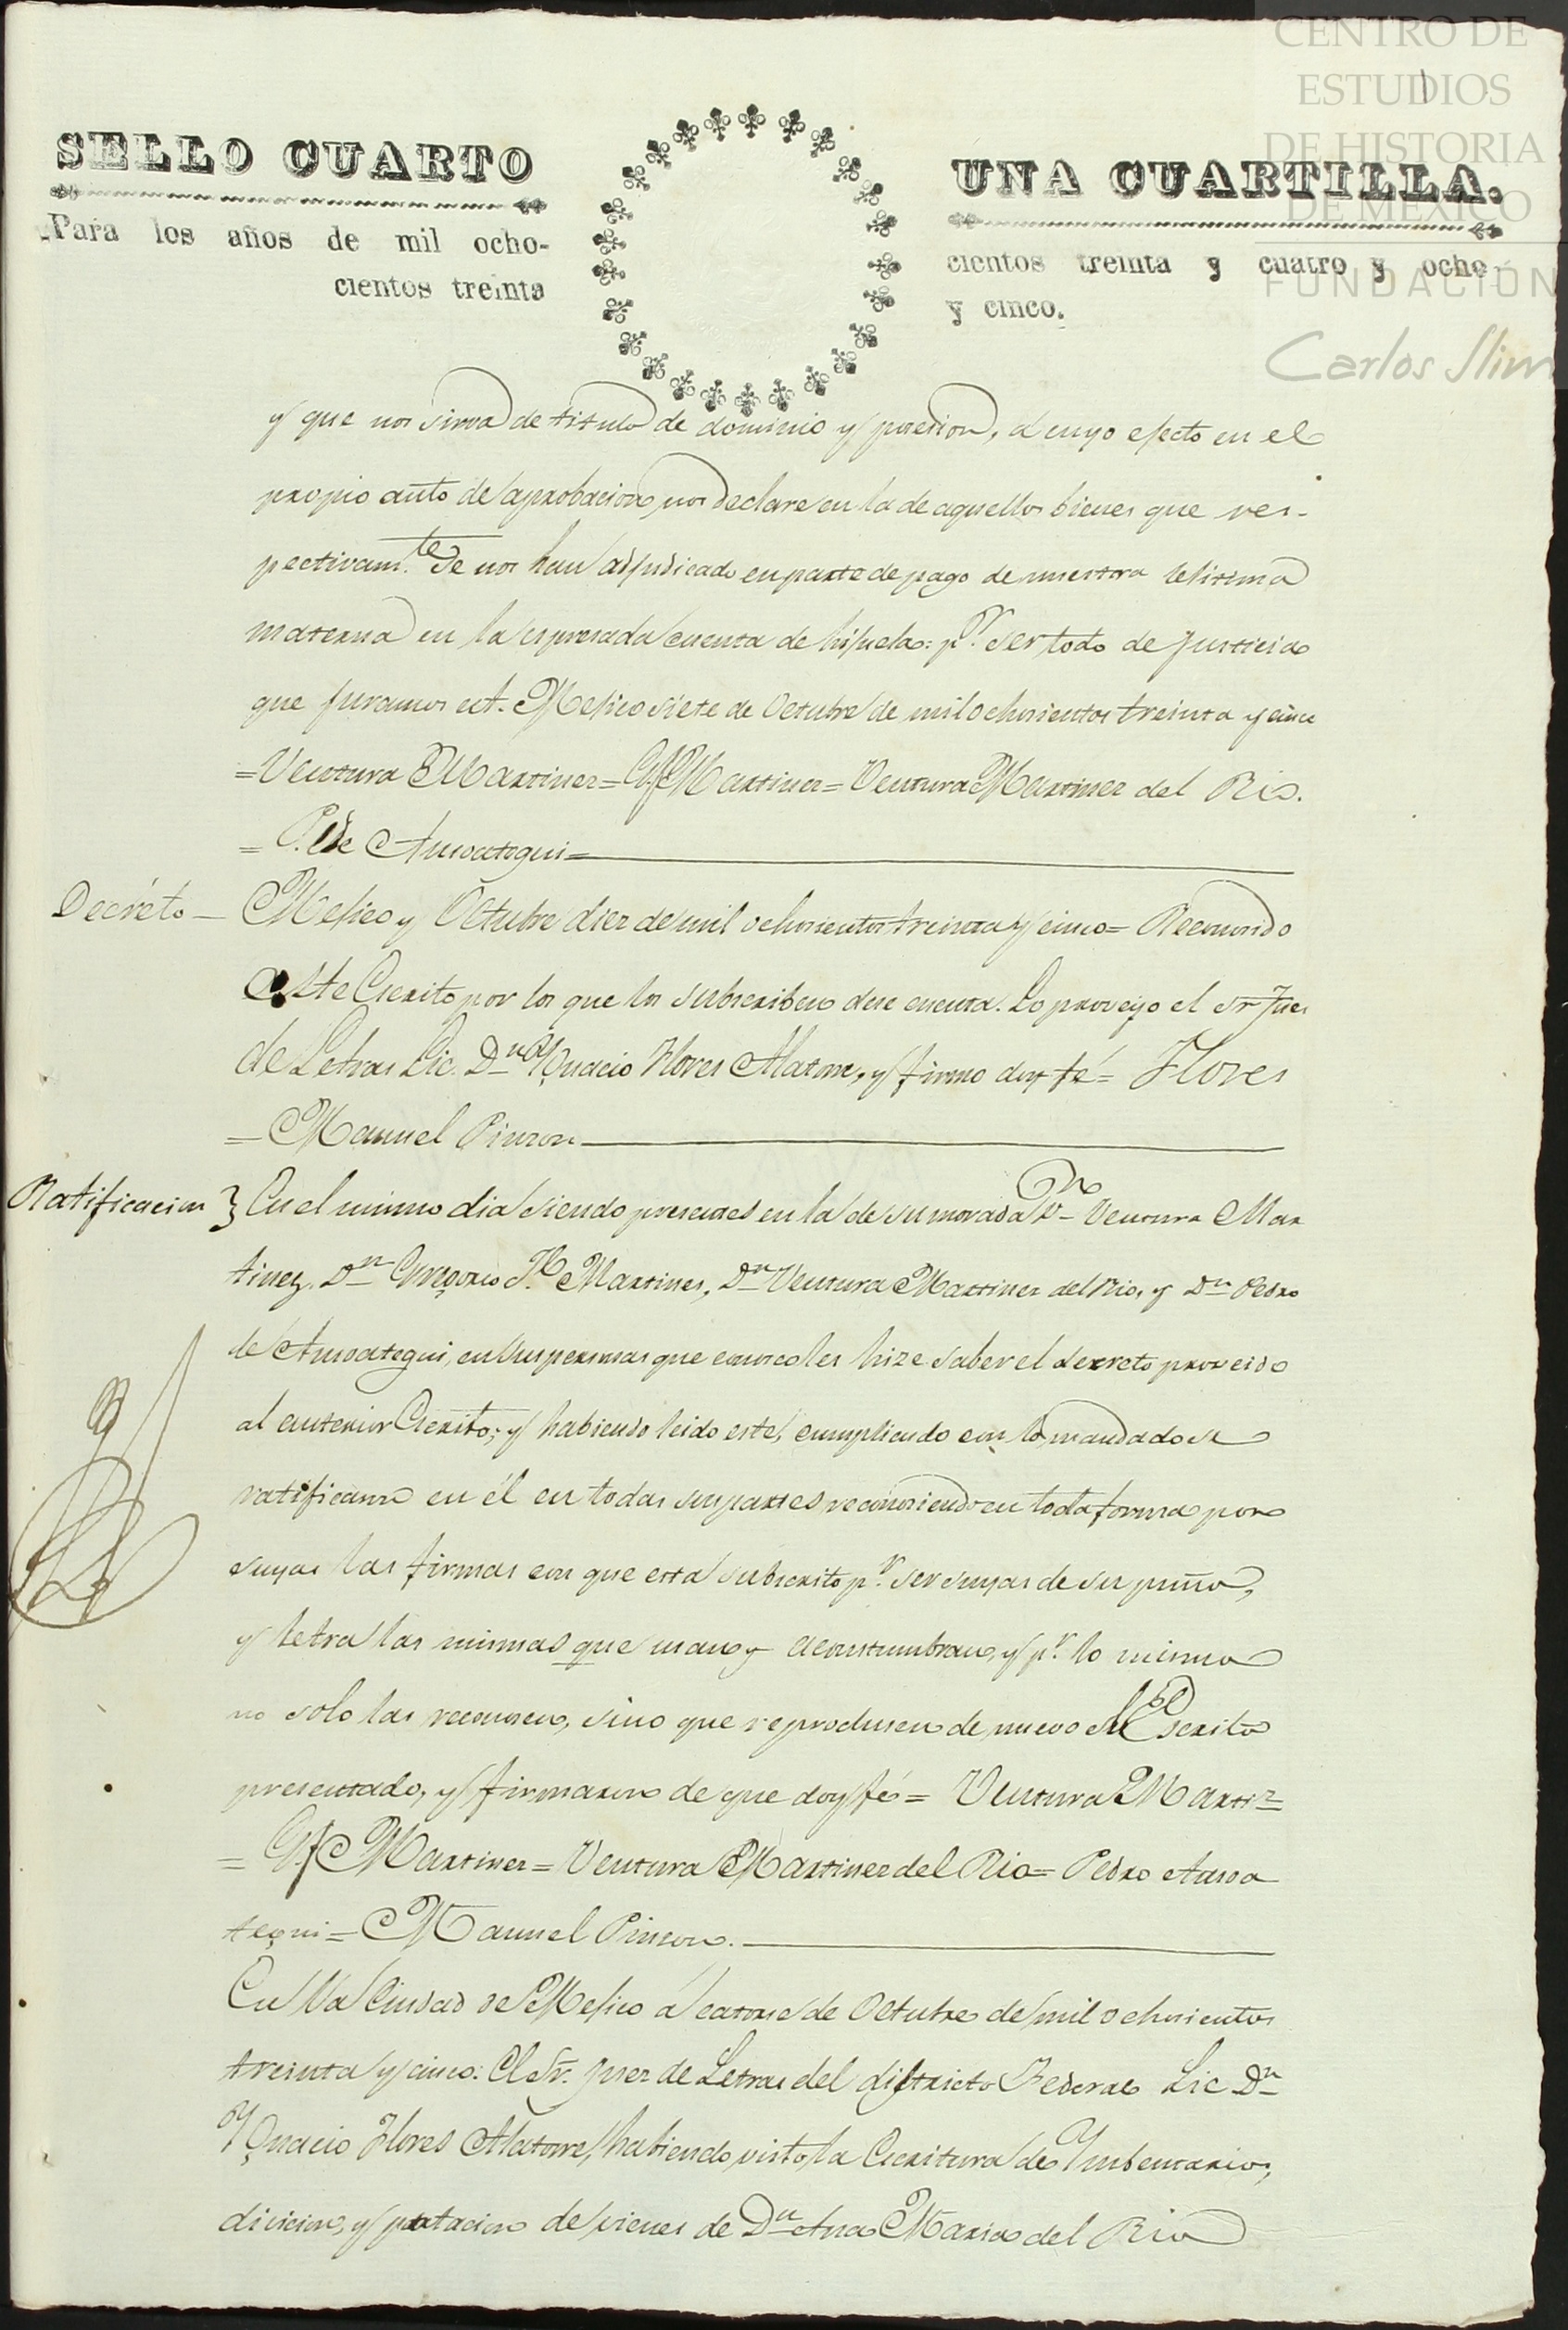 CENTRO DE
ESTUDIOS
DE HISTORIA
DE MÉXICO
FUNDACIÓN
Carlos Slim
SELLO CUARTO
Para los años de mil ocho-
cientos treinta
UNA CUARTILLA.
cientos treinta y cuatro y ocho
y cinco.
y que nos sirva de titulo de dominio y posecion, á cuyo efecto en el
propio auto de aprobacion, nos declare en la de aquellos bienes que res-
pectivam.te se nos han adjudicado en parte de pago de nuestra lejitima
materna en la espresada cuenta de hijuela: p.r ser todo de justicia
que juramos ect. Mejico siete de Octubre de mil ochosientos treinta y cinco
=Ventura Martinez= G. J. Martinez= Ventura Martinez del Rio.
= P. de Ansoategui=
Decreto — Mejico y Octubre diez de mil ochosientos treinta y cinco= Reconosido
este Escrito por los que lo subscriben dese cuenta. Lo proveyo el Sr Juez
de Letras Lic. Dn Ygnacio Flores Alatorre, y firmo doy fé= Flores
=Manuel Pinzon
Ratificacion } En el mismo dia siendo presentes en la de su morada Dn Ventura Mar
tinez, Dn Gregorio J.e Martinez, Dn Ventura Martinez del Rio, y Dn Pedro
de Ansoategui, en sus personas que conosco les hize saber el decreto proveido
al anterior Escrito; y habiendo leido este, cumpliendo con lo mandado se
ratificaron en él en todas sus partes, reconosiendo en toda forma por
suyas las firmas con que está subscrito p.r ser suyas de su puño,
y letra las mismas que usan y acoustumbran, y p.r lo mismo
no solo las reconosen, sino que reprodusen de nuevo el Escrito
presentado, y firmaron de que doy fé= Ventura Martiz
= G. J. Martinez= Ventura Martinez del Rio= Pedro Ansoa
tegui= Manuel Pinzon.
En la Ciudad de Mejico á catorse de Octubre de mil ochosientos
treinta y cinco: El Sr. Juez de Letras del districto Federal Lic Dn
Ygnacio Flores Alatorre, habiendo visto la Escritura de Ymbentarios,
divicion, y partacion de vienes de Da Ana Maria del Rio